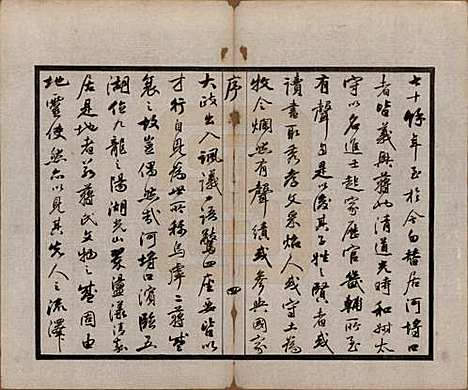 七十餘年至於今自替居河塔口
者皆義興蔣
清道光時和州太
守以名進士起家歷官畿輔所至
有聲自是以後其子姓之賢者或
讀書取秀孝文采
人或守土為
牧令燗然有聲績或參與國家
序
四
大政出入諷議口語驚四座無皆以
才行自見為世所稱烏虖二蔣盛
衰之故豈偶然哉河塔口濱臨五
湖位九龍之陽湖光山翠盪漾清嘉
居是地者若蔣氏文物之盛固由
地靈使然亦以見其先人之流澤